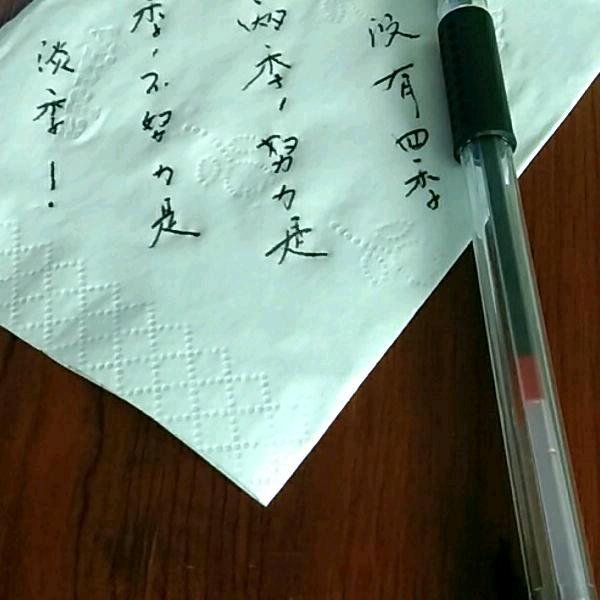 没有四季
两季，努力是
季，不努力是
淡季！